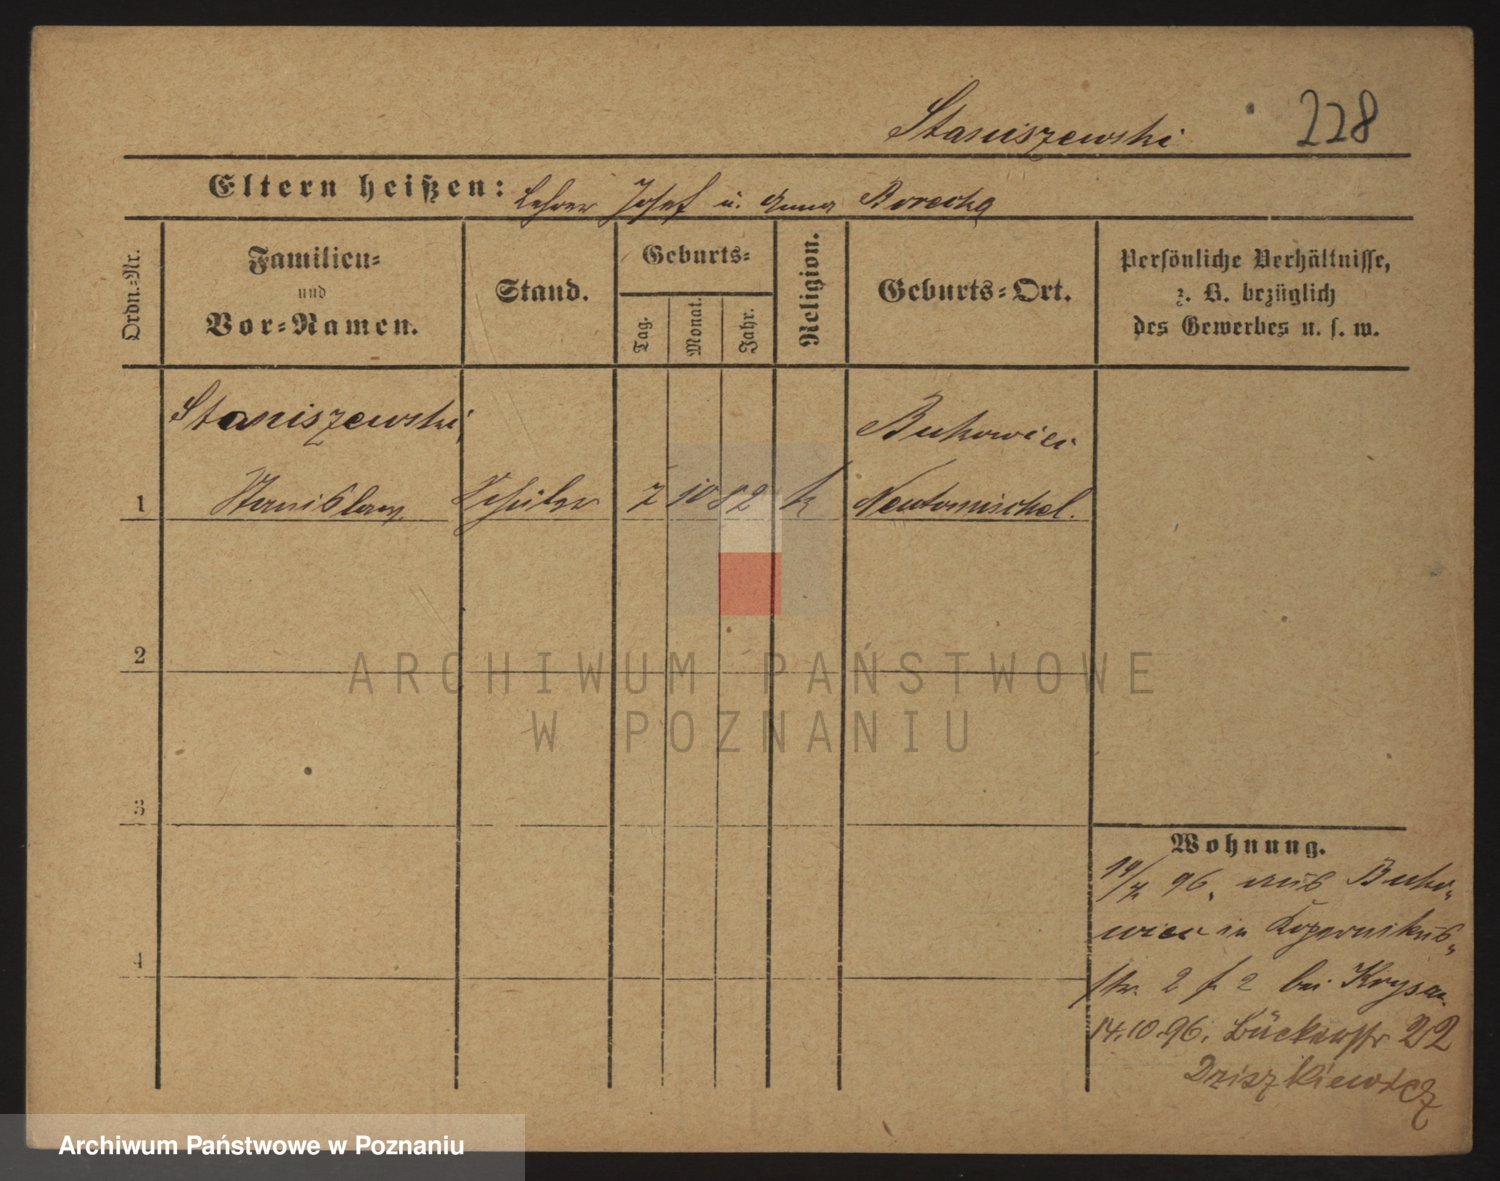 Staniszewski 228
Eltern heißen: Lehrer Josef u. Anna Borecka
Ordn.-Nr.
Familien-
und
Vor-Namen.
Stand.
Geburts-
Tag.
Monat.
Jahr.
Religion.
Geburts-Ort.
Persönliche Verhältnisse,
z. B. bezüglich
des Gewerbes u. s. w.
Staniszewski, Bukowiec
1 Stanislaw Schüler 7 10 82 k Neutomischel.
2
3
4
Wohnung.
96. aus Buko-
wiec in Kopernikus-
str. 2 bei Krysan
14.10.96. Bückerstr 22
Dziszkiewicz
ARCHIWUM PAŃSTWOWE
W POZNANIU
Archiwum Państwowe w Poznaniu